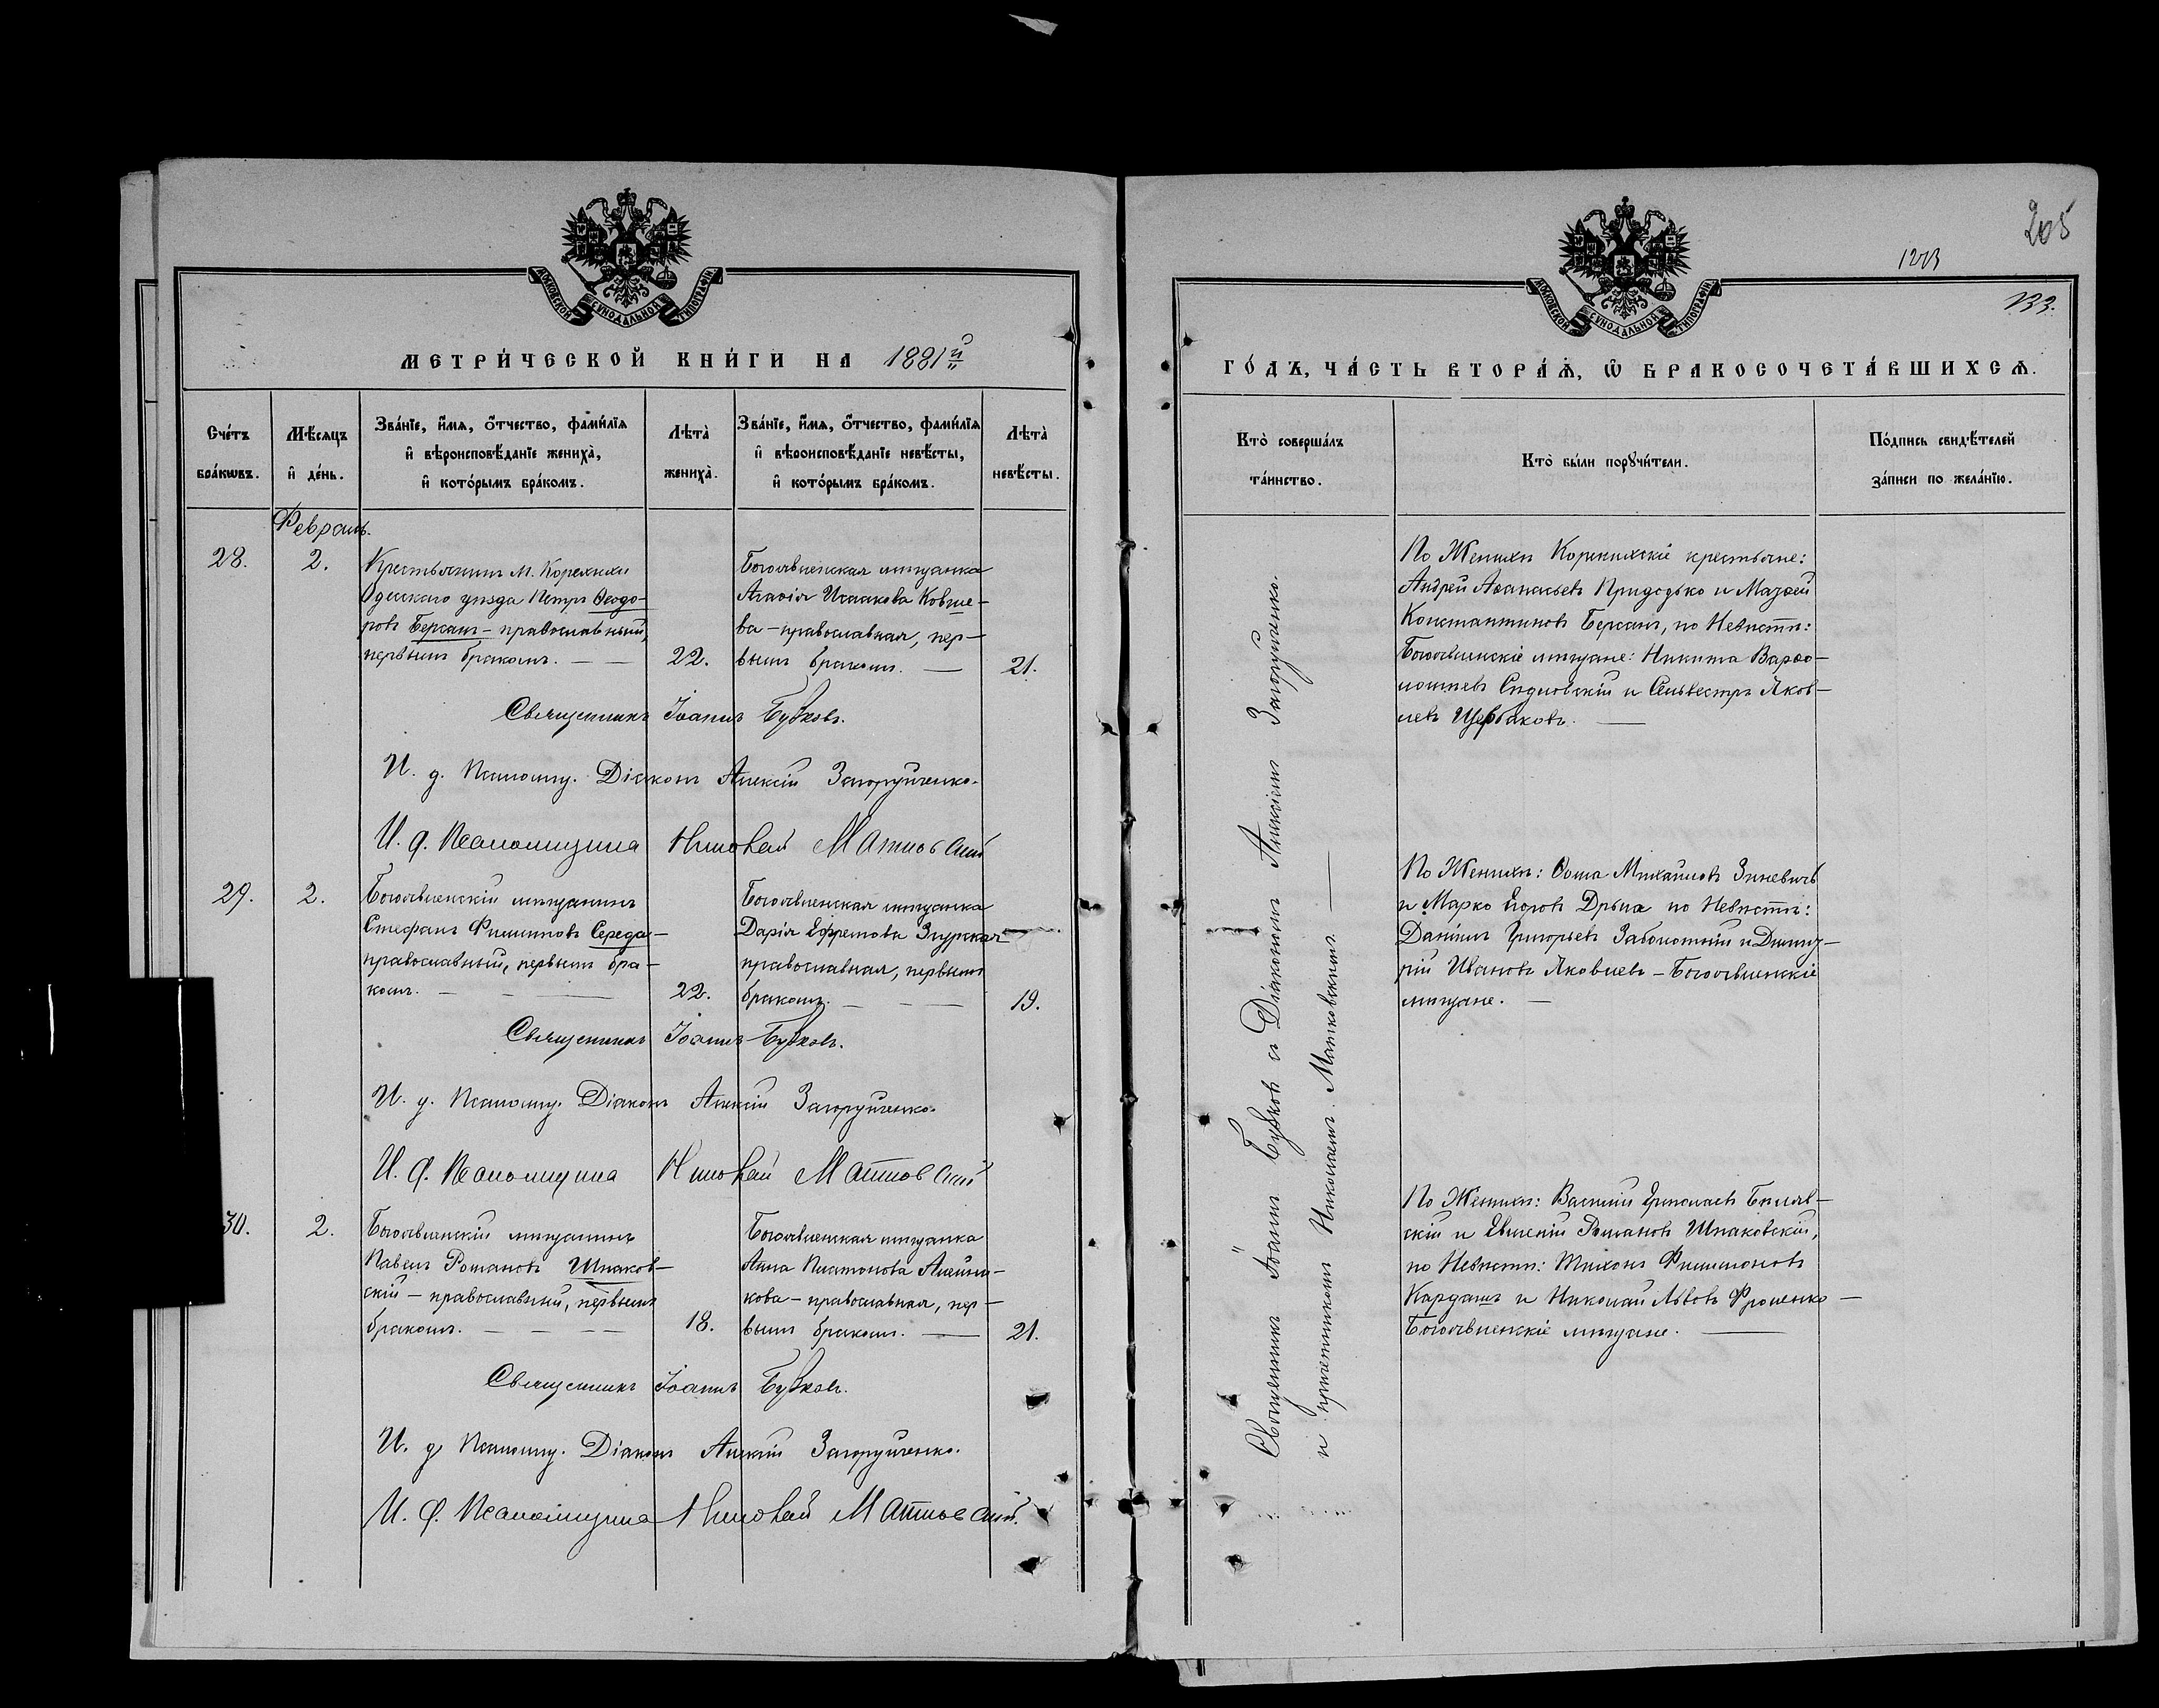 МОСКОВСКОЙ СѴНОДАЛЬНОЙ ТИПОГРАФІИ
МЕТРИ́ЧЕСКОЙ КНИ́ГИ НА 1881й
Сче́тъ бра́кѡвъ.
Мѣ́сяцъ и҆ де́нь.
Зва́нїе, и҆́мѧ, ѻ҆́тчество, фами́лїѧ
и҆ вѣроисповѣ́данїе жениха̀,
и҆ кото́рымъ бра́комъ.
Лѣта̀ жениха̀.
Зва́нїе, и҆́мѧ, ѻ҆́тчество, фами́лїѧ
и҆ вѣроисповѣ́данїе невѣ́сты,
и҆ кото́рымъ бра́комъ.
Лѣта̀ невѣ́сты.
Февраль.
28.
2.
Крестьянинъ м. Коренихи
Одесскаго уѣзда Петръ Ѳеодо-
ровъ Берсанъ - православный,
первымъ бракомъ. — —
22.
Богоявленская мѣщанка
Агаѳія Исаакова Ковше-
ва - православная, пер-
вымъ бракомъ. —
21.
Священникъ Іоаннъ Бубковъ.
И. д. Псаломщ. Діаконъ Алексій Загоруйченко.
И. д. Псаломщика Николай Матковскій
29.
2.
Богоявленскій мѣщанинъ
Стефанъ Филипповъ Середа -
православный, первымъ бра-
комъ. — — —
22.
Богоявленская мѣщанка
Дарія Ефремова Згурская
православная, первымъ
бракомъ. — — —
19.
Священникъ Іоаннъ Бубковъ.
И. д. Псаломщ. Діаконъ Алексій Загоруйченко.
И. д. Псаломщика Николай Матковскій
30.
2.
Богоявленскій мѣщанинъ
Павелъ Романовъ Шпаков-
скій - православный, первымъ
бракомъ. — — —
18.
Богоявленская мѣщанка
Анна Платонова Алейни-
кова - православная, пер-
вымъ бракомъ. —
21.
Священникъ Іоаннъ Бубковъ.
И. д. Псаломщ. Діаконъ Алексій Загоруйченко.
И. д. Псаломщика Николай Матковскій.
205
133.
МОСКОВСКОЙ СѴНОДАЛЬНОЙ ТИПОГРАФІИ
ГО́ДЪ, ЧА́СТЬ ВТОРА́Ѧ, Ѡ҆ БРАКОСОЧЕТА́ВШИХСѦ.
Кто̀ соверша́лъ та́инство.
Кто̀ бы́ли порꙋчи́тели.
По́дпись свидѣ́телей за́писи по жела́нїю.
Священникъ Іоаннъ Бубковъ съ Діакономъ Алексіемъ Загоруйченко.
и причетникомъ Николаемъ Матковскимъ. —
По Женихѣ Коренихскіе крестьяне:
Андрей Аѳанасьевъ Придодько и Маѳей
Константиновъ Берсанъ, по Невѣстѣ:
Богоявленскіе мѣщане: Никита Варѳо-
ломѣевъ Сидловскій и Сильвестръ Яков-
левъ Щербаковъ. —
По Женихѣ: Ѳома Михайловъ Зиневичъ
и Марко Егоровъ Дрыга по Невѣстѣ:
Даніилъ Григорьевъ Заболотній и Димит-
рій Ивановъ Яковлевъ - Богоявленскіе
мѣщане. —
По Женихѣ: Василій Ермолаевъ Бѣляв-
скій и Евгеній Романовъ Шпаковскій,
по Невѣстѣ: Тихонъ Филимоновъ
Кардашъ и Николай Львовъ Фроленко -
Богоявленскіе мѣщане. —